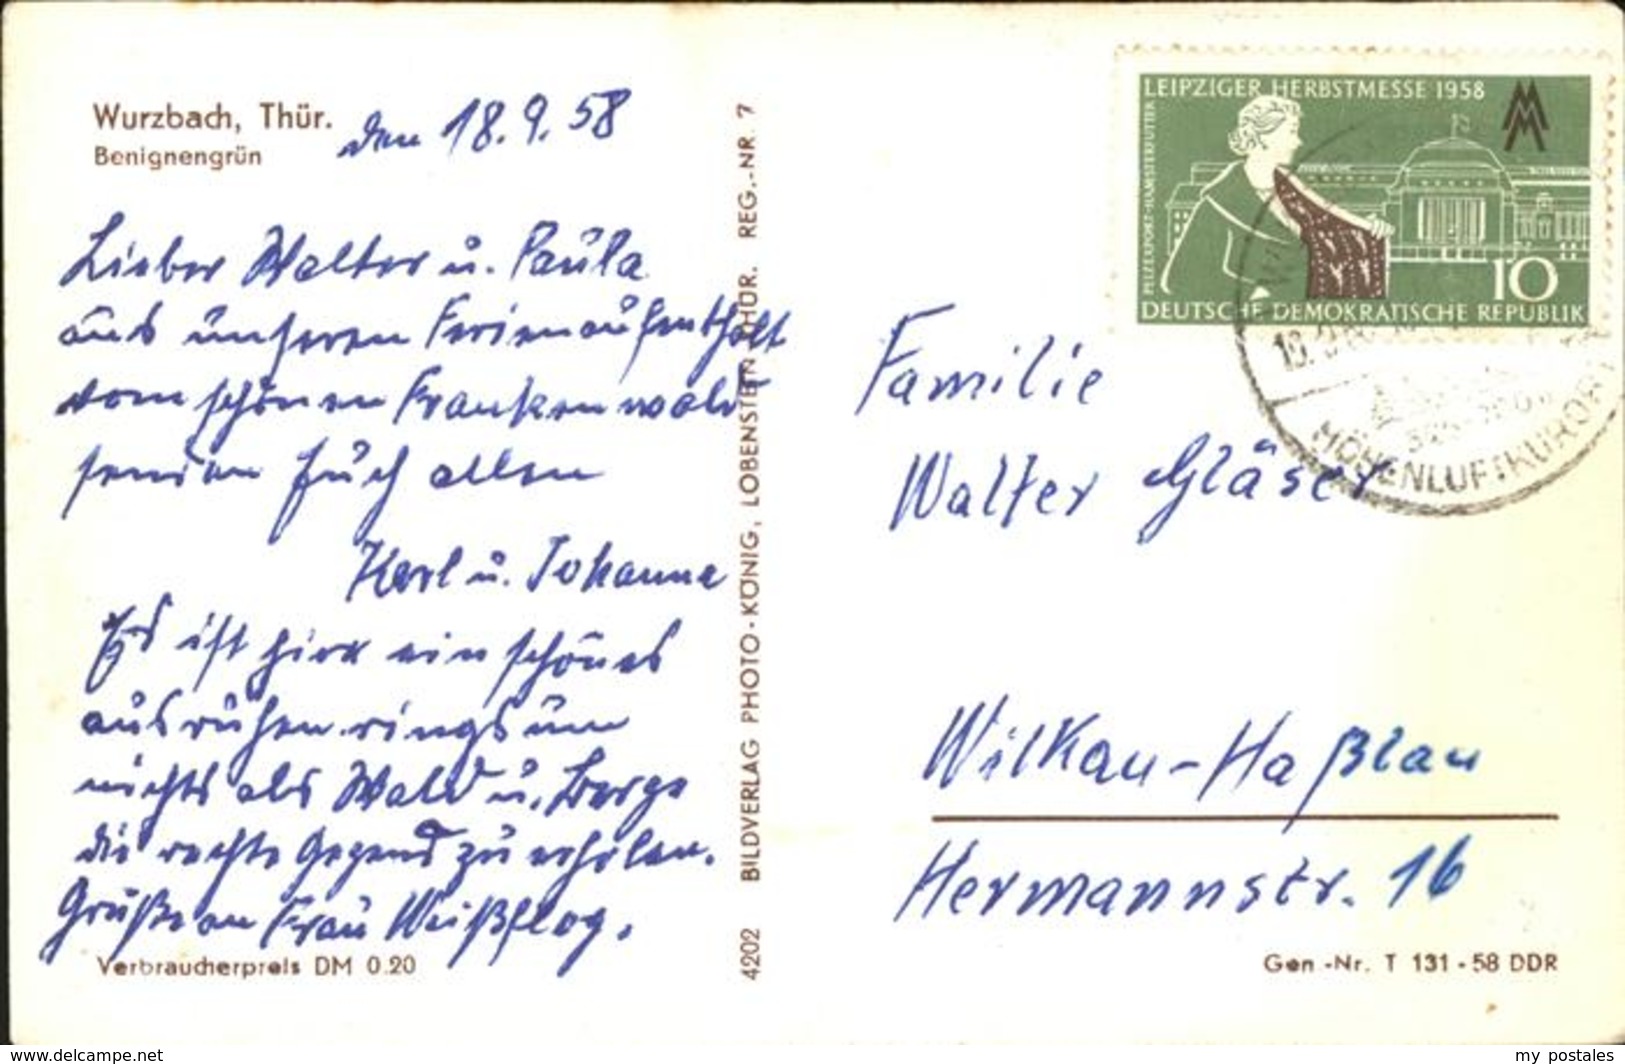 Wurzbach, Thür.
Benignengrün
den 18.9.58
Lieber Walter u. Paula
aus unseren Ferienaufenthalt
vom schönen Frankenwald
senden Euch allen
Karl u. Johanna
Es ist hier ein schönes
ausruhen rings um
nichts als Wald u. Berge
die rechte Gegend zu erholen.
Grüße an Frau Weißflog.
Verbraucherpreis DM 0.20
4202 BILDVERLAG PHOTO-KÖNIG, LOBENSTEIN THÜR. REG.-NR. 7
LEIPZIGER HERBSTMESSE 1958
PELZEXPORT-HAMSTERFUTTER
10
DEUTSCHE DEMOKRATISCHE REPUBLIK
HÖHENLUFTKURORT
Familie
Walter Gläser
Wilkau-Haßlau
Hermannstr. 16
Gen-Nr. T 131-58 DDR
www.delcampe.net
my_postales